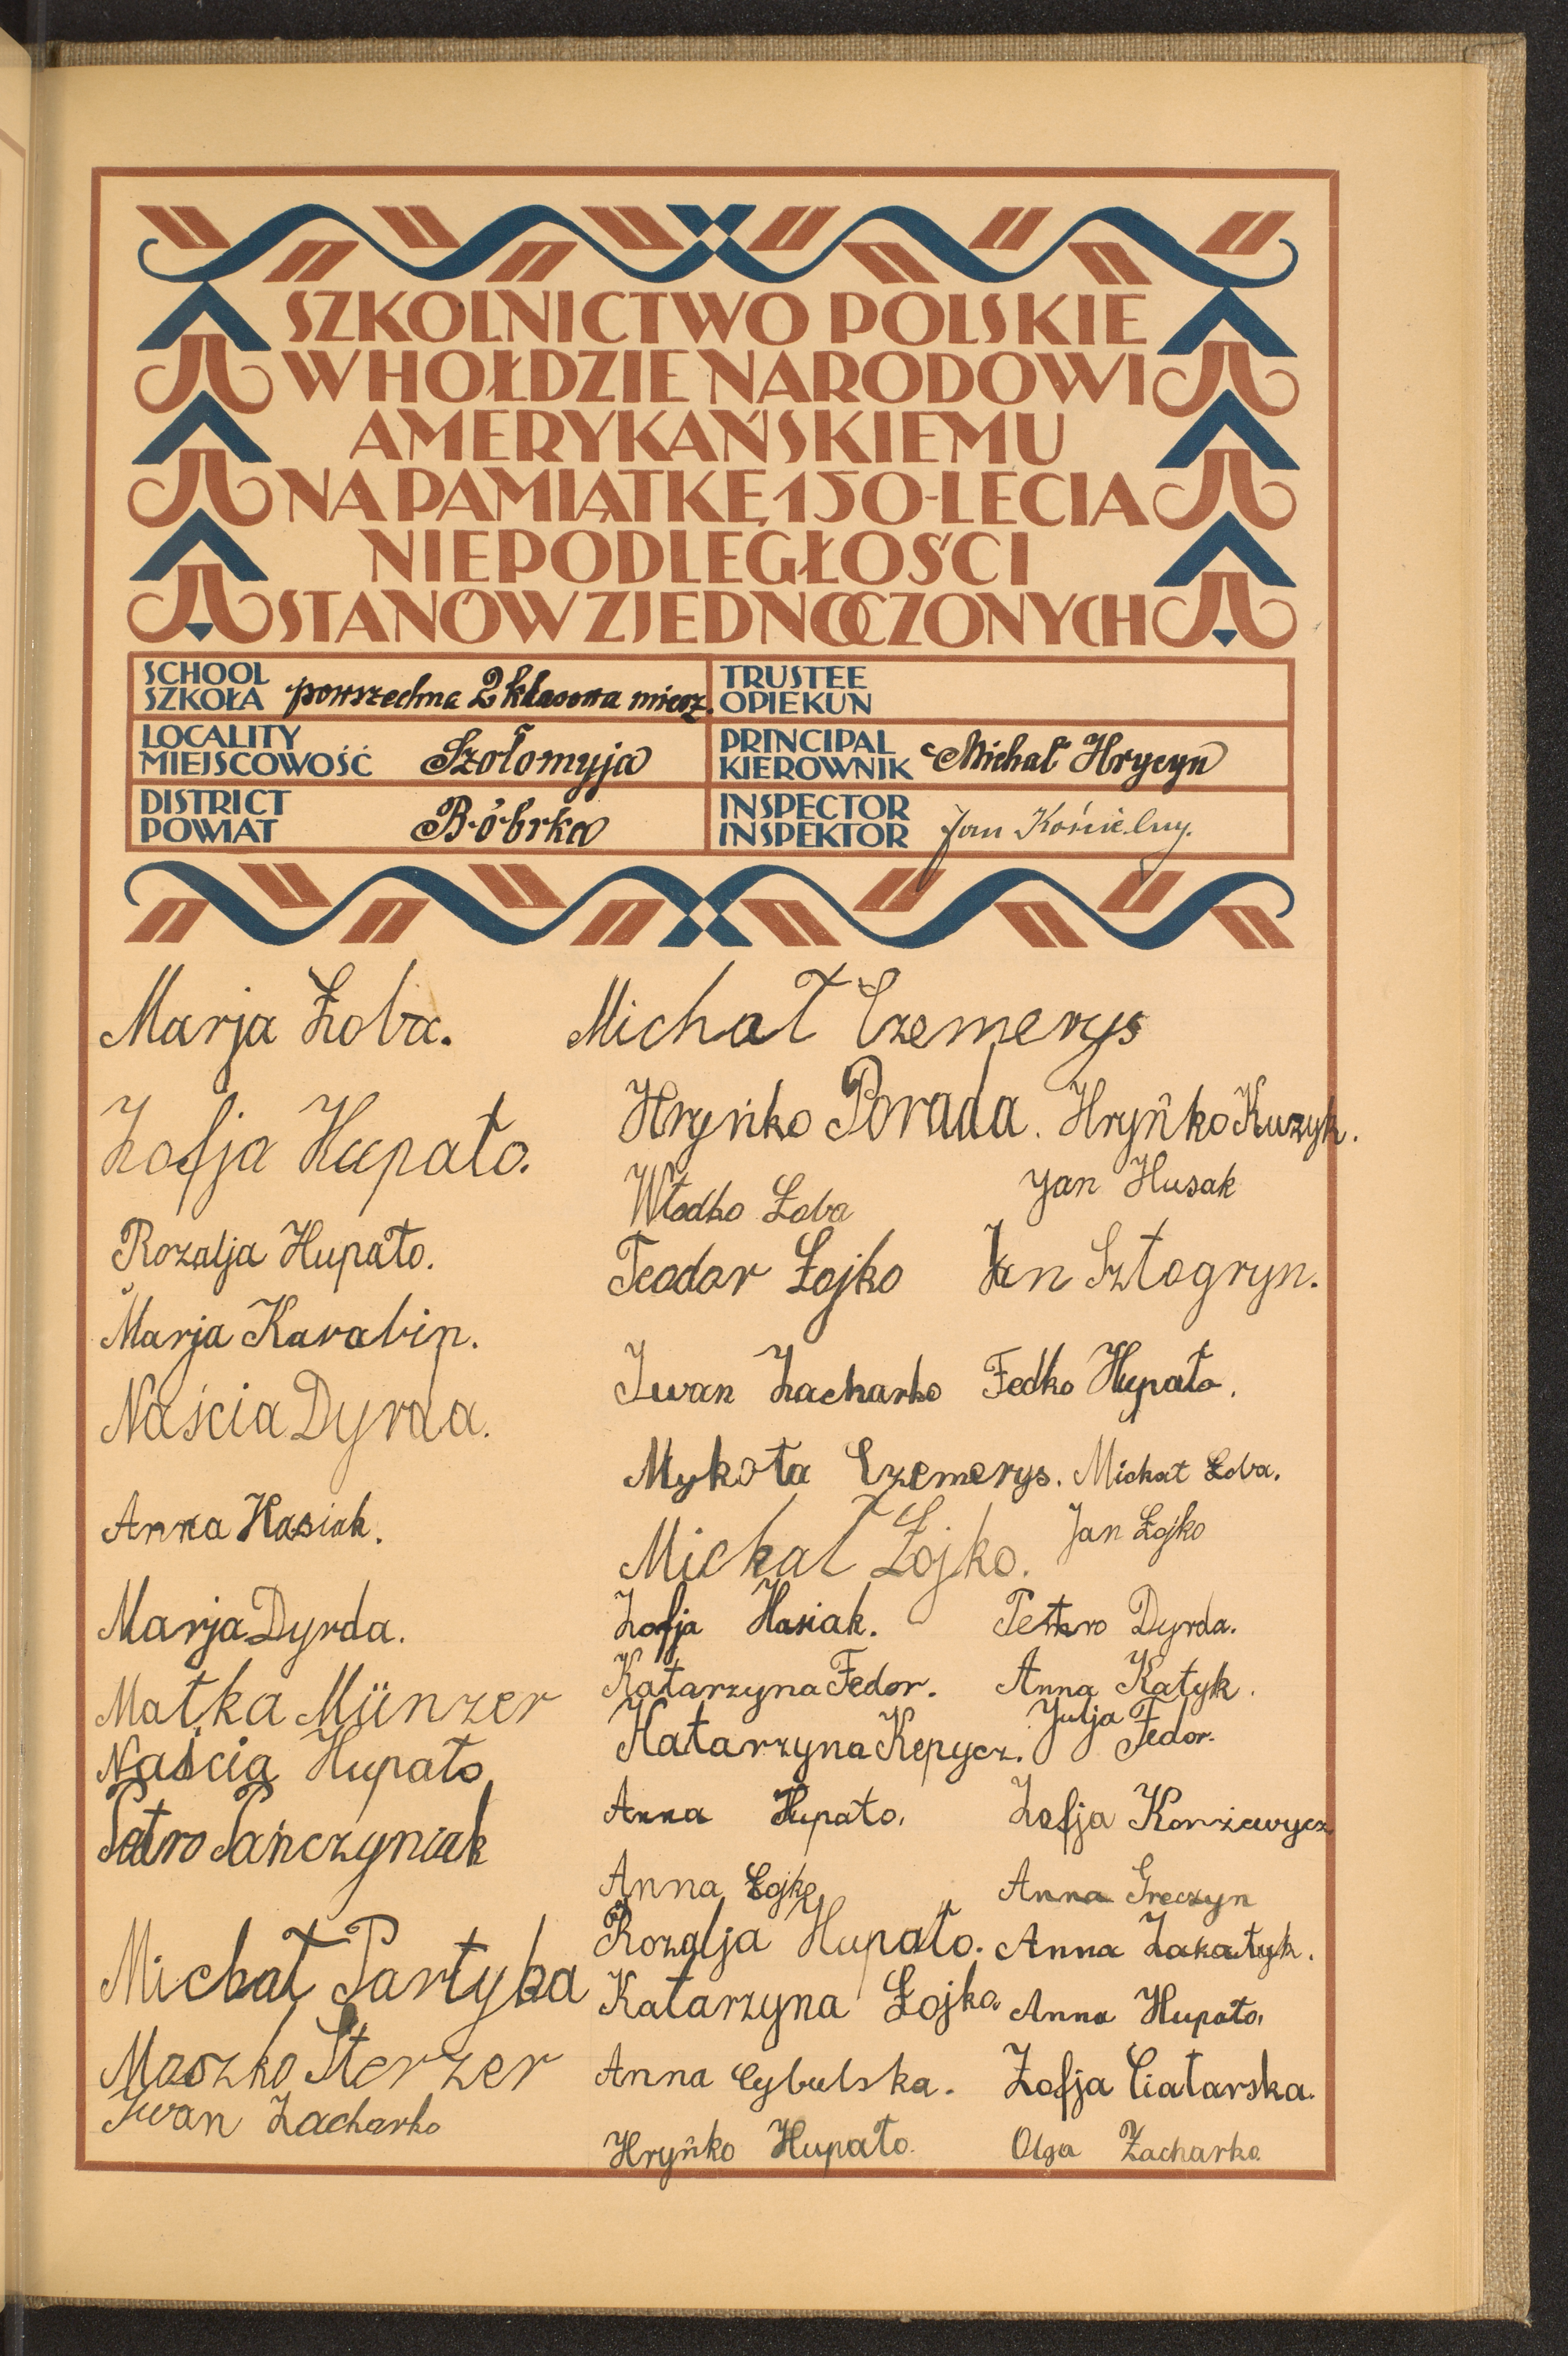 SZKOLNICTWO POLSKIE
W HOŁDZIE NARODOWI
AMERYKAŃSKIEMU
NA PAMIĄTKĘ 150-LECIA
NIEPODLEGŁOŚCI
STANÓW ZJEDNOCZONYCH
SCHOOL
SZKOŁA powszechna 2 klasowa miesz.
TRUSTEE
OPIEKUN
LOCALITY
MIEJSCOWOŚĆ Szołomyja
PRINCIPAL
KIEROWNIK Michał Hrycyn
DISTRICT
POWIAT Bóbrka
INSPECTOR
INSPEKTOR Jan Kościelny.
Marja Łoba.
Zofja Hupało.
Rozalja Hupało.
Marja Karabin.
Naścia Dyrda.
Anna Hasiak.
Marja Dyrda.
Małka Münzer
Naścia Hupało
Petro Pańczyniak
Michał Partyka
Moszko Sterzer
Iwan Zacharko
Michał Czemerys
Hryńko Porada. Hryńko Kuzyk.
Włodko Łoba Jan Husak
Teodor Łojko Jan Sztogryn.
Iwan Zacharko Fedko Hupało.
Mykoła Czemerys. Michał Łoba.
Michał Łojko. Jan Łojko
Zofja Hasiak. Petro Dyrda.
Katarzyna Fedor. Anna Katyk.
Katarzyna Kepycz. Julja Fedor.
Anna Hupało. Zofja Konżewycz
Anna Łojko Anna Greczyn
Rozalja Hupało. Anna Zakałyk.
Katarzyna Łojko. Anna Hupało.
Anna Cybulska. Zofja Ciatarska.
Hryńko Hupało. Olga Zacharko.